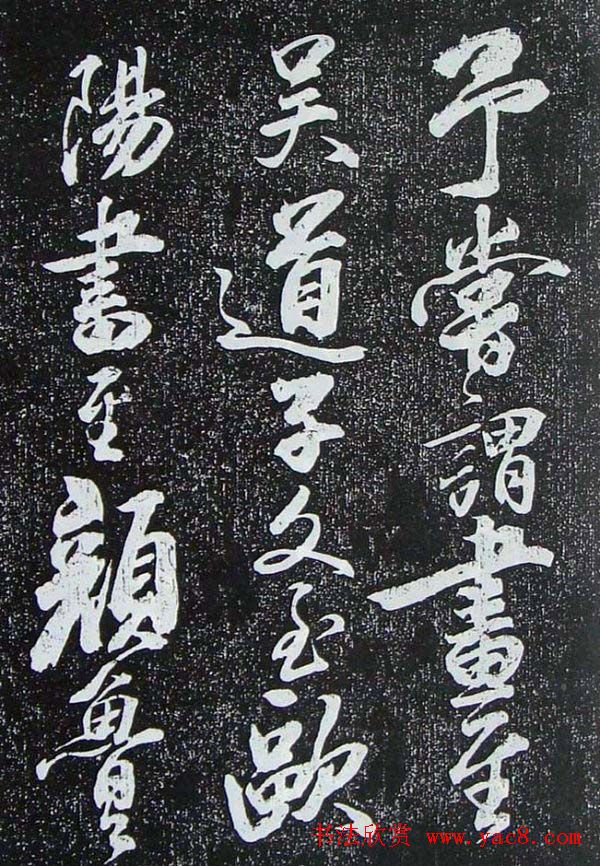 予嘗謂畫至
吳道子文至歐
陽書至顏魯
书法欣赏 www.yac8.com